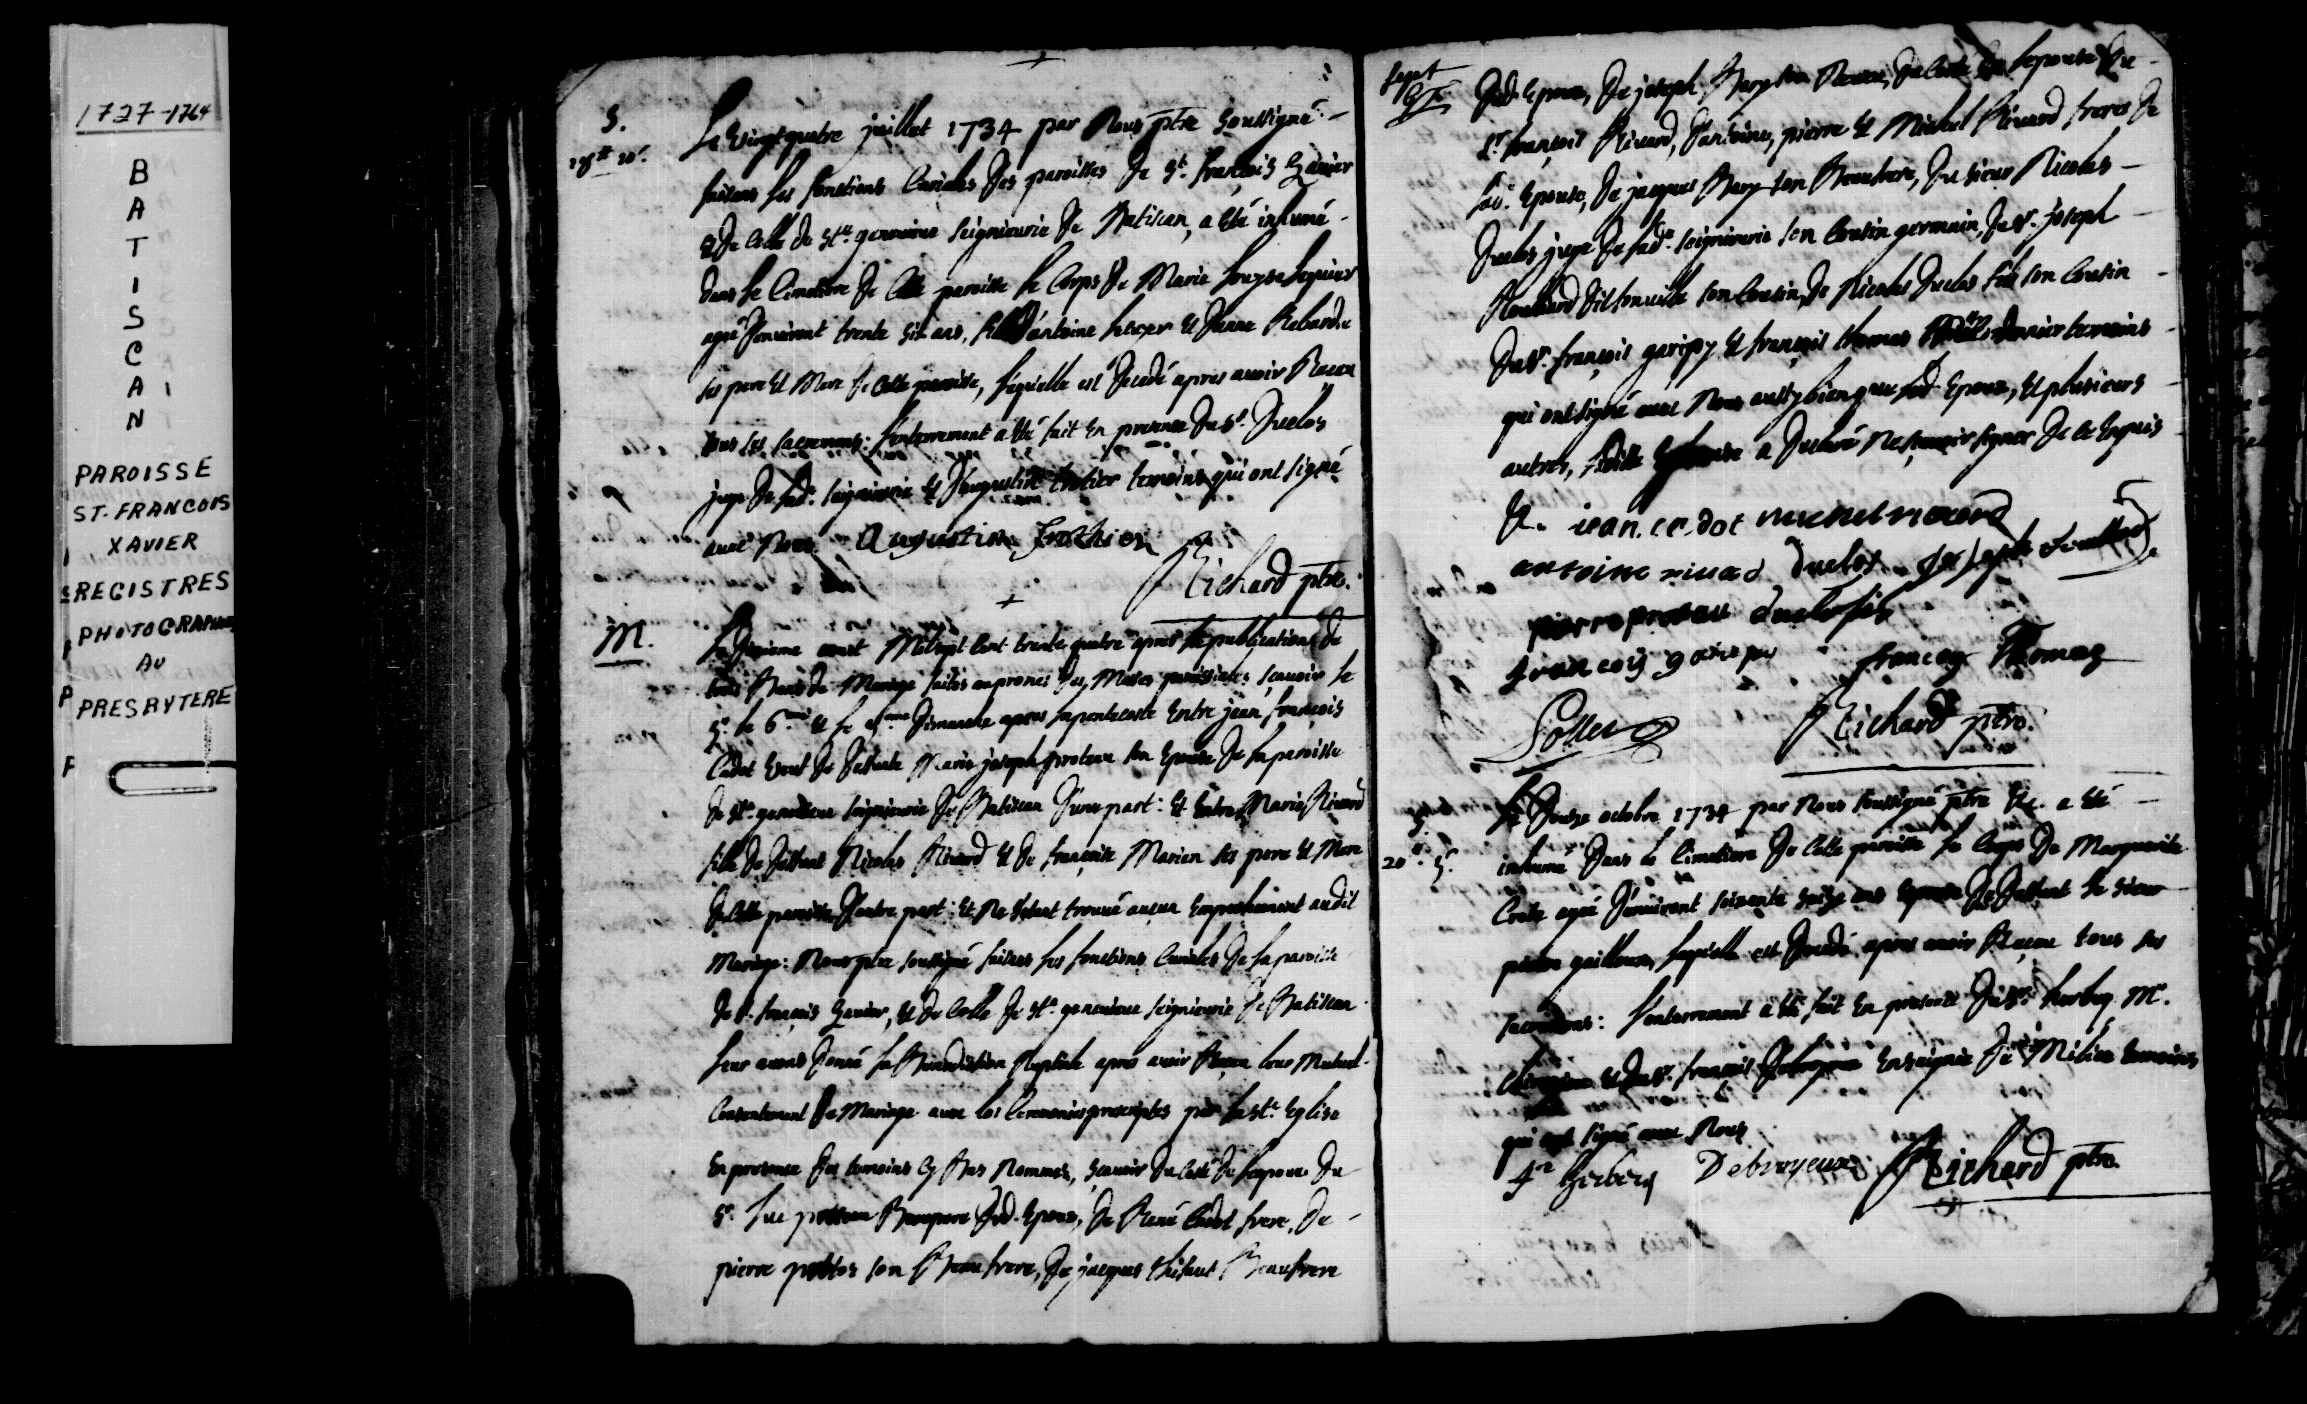 1727-1764
BATISCAN
PAROISSE
ST. FRANCOIS
XAVIER
REGISTRES
PHOTOGRAPHIES
AU
PRESBYTERE
S.
18tt 10s.
Le Vingt quatre juillet 1734 par Nous ptre Soussigné
faisans les fonctions Curiales des paroisses de St. françois Xavier
& de Celle de Ste. genevieve seigneurie de Batiscan, a Eté inhumé
dans le Cimetiere de Cette paroisse le Corps de Marie
agée d'environt trente six ans, fille d'antoine et Janne
ses pere Et Mere de Cette paroisse, lequelle est decedé apres avoir Receu
tous les sacremens: l'enterrement a Eté fait En presence du Sr. Duclos
juge de lade. seigneurie Et d'augustin trotier temoins qui ont signé
avec Nous. Augustin Trothier
Richard ptre.
M.
Le aoust Mil sept Cent trente quatre apres la publications de
trois Bans de Mariage faites au prones des Messes paroissiales scavoir le
5e. le 6eme Et le 7eme Dimanche apres la pentecoste Entre jean françois
Cadot Veuf de deffunte Marie joseph proteau son Epouse de la paroisse
de Ste. genevieve seigneurie de Batiscan d'une part: Et Entre Marie Rivard
fille de deffunt Nicolas Rivard Et de françoise Marien ses pere Et Mere
de Cette paroisse d'autre part: Et Ne s'étant trouvé aucun Empechement audit
Mariage: Nous ptre soussigné faisans les fonctions Curiales de la paroisse
de St. françois Xavier, Et de Celle de Ste. genevieve seigneurie de Batiscan
leur avons donné la Benediction Nuptiale apres avoir Receu leur Mutuel
Consentement de Mariage avec les Ceremonies prescriptes par la Ste. Eglise
En presence des temoins Cy Bas Nommés, scavoir du Costé de l'epoux du
Sr. Luc proteau Beaupere dud. Epoux, de René Cadot frere, de
pierre son Beaufrere, de jacques Beaufrere
Sept
dud. Epoux, de joseph Bary son Neveu, du Costé de l'epouse du
Sr. françois Rivard, d'antoine, pierre Et Michel Rivard freres de
lade. Epouse, de jacques Bary son Beaufrere, du sieur Nicolas
Duclos juge de lade. seigneurie son Cousin germain, du Sr. joseph
Rouillard son Cousin, de Nicolas Duclos fils son Cousin
du Sr. françois gariepy Et françois thomas temoins
qui ont signé avec Nous aussy bien que led. Epoux, Et plusieurs
autres, ladite Epouse a declaré Ne scavoir signer de Ce Enquis
&. iean. cadot michel rivard
antoine rivard Duclos joseph rouillard
pierre proteau duclos fils
francois gariepy francoy Thomas
Richard ptre.
S.
20tt. 5s.
Le Douze octobre 1734 par Nous soussigné ptre &c. a Eté
inhumé dans le Cimetiere de Cette paroisse le Corps de Marguerite
agée d'environt soixante seize ans Epouse de deffunt le sieur
lequelle est decedé apres avoir Receue tous ses
sacremens: l'enterrement a Eté fait En presence du Sr. herbeq Me.
Chirurgien Et du Sr. françois Enseigne de Milice temoins
qui ont signé avec Nous
Debroyeux Richard ptre.